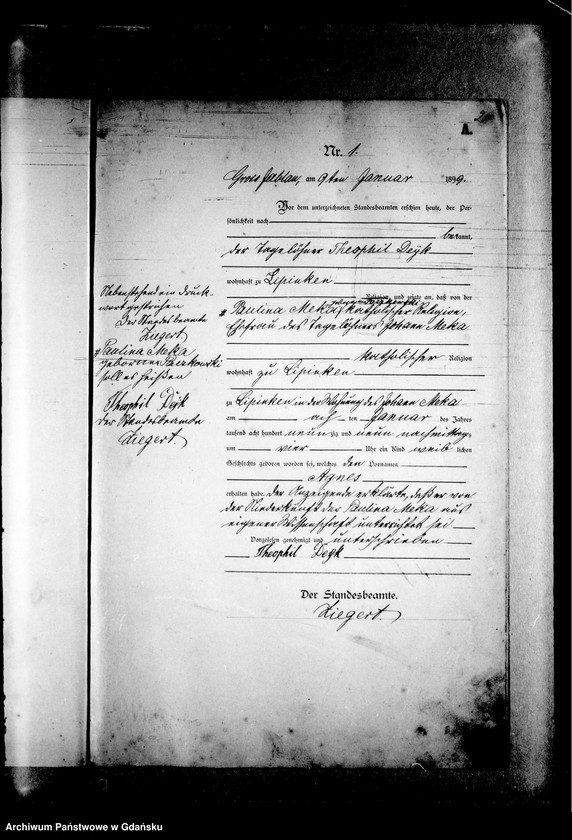 A.
Nr. 1.
Gross Jablau, am 9ten Januar 1899.
Vor dem unterzeichneten Standesbeamten erschien heute, der Per-
sönlichkeit nach
bekannt,
der Tagelöhner Theophil Deyk
wohnhaft zu Lipinken
Religion, und zeigte an, daß von der
Paulina Meka katholischer Religion,
Ehefrau des Tagelöhners Johann Meka
katholischer Religion
wohnhaft zu Lipinken
zu Lipinken in der Wohnung des Johann Meka
am ten Januar des Jahres
tausend acht hundert neunzig und neun nachmittags
um vier Uhr ein Kind weiblichen
Geschlechts geboren worden sei, welches den Vornamen
Agnes
erhalten habe. Der Anzeigende erklärte, daß er von
der Niederkunft der Paulina Meka aus
eigener Wissenschaft unterrichtet sei
Vorgelesen, genehmigt und unterschrieben
Theophil Deyk
Der Standesbeamte.
Ziegert.
Nebenstehend ein Druck-
wort gestrichen
Der Standesbeamte
Ziegert
Paulina Meka
geborne
soll es heißen
Theophil Deyk
der Standesbeamte
Ziegert.
Archiwum Państwowe w Gdańsku